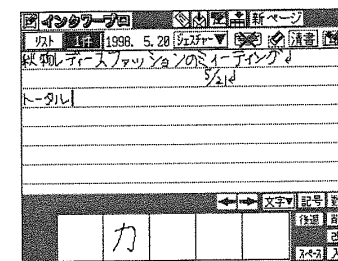 インクワープロ 新ページ
リスト 1件 1998. 5.20 ジェスチャー▼ 清書
秋物レディースファッションのミィーティング
5/21
トータル
文字▼ 記号
力
後退
スペース